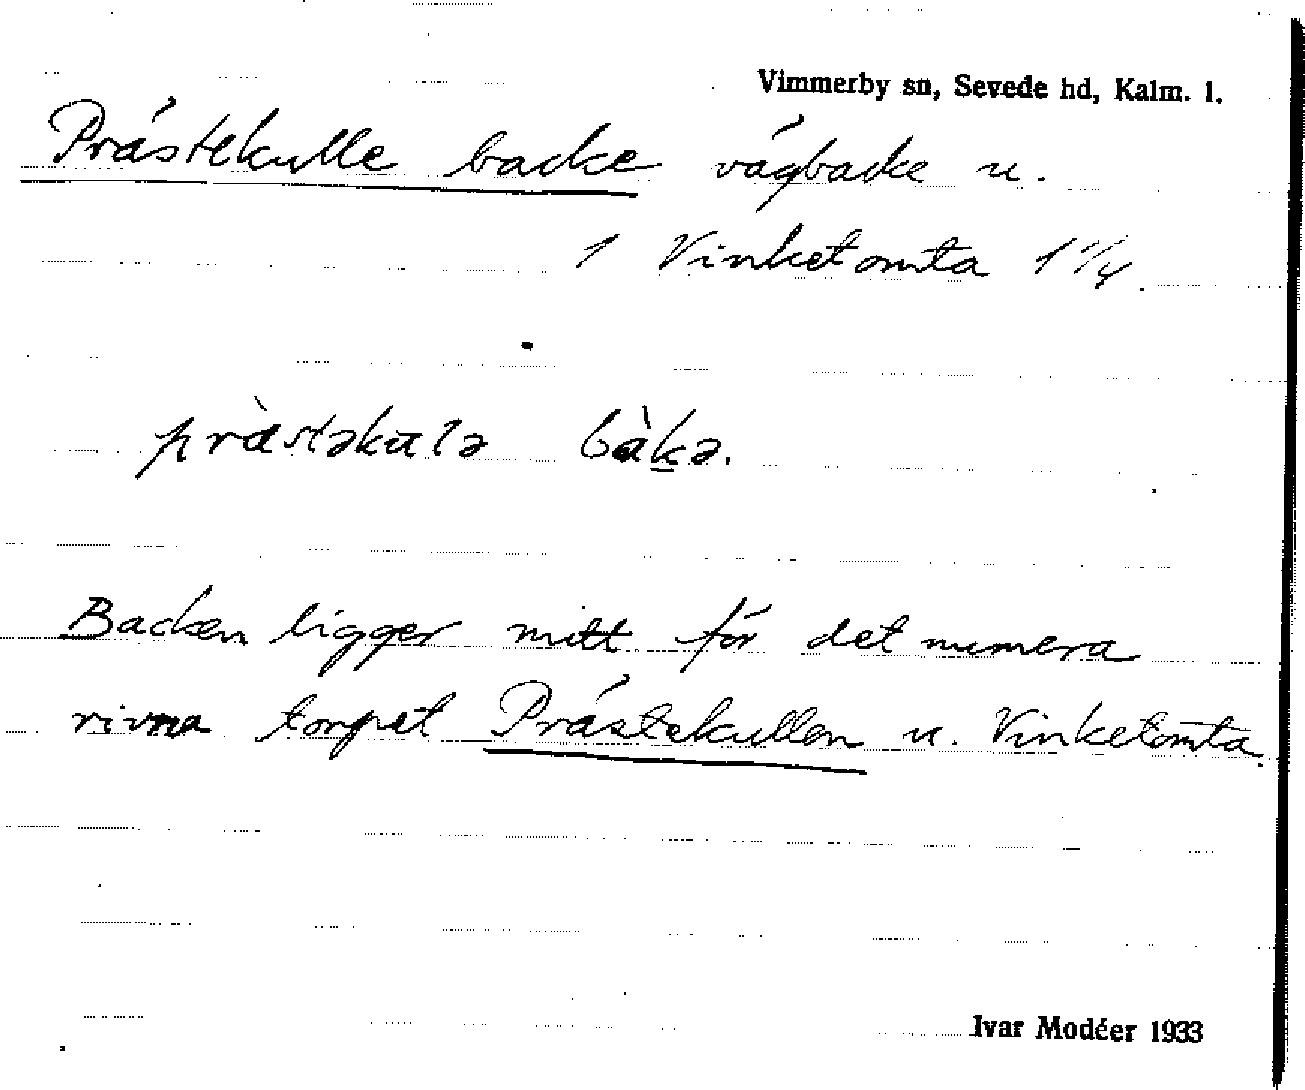 Vimmerby sn, Sevede hd, Kalm. l.
Prästekulle backe vägbacke u.
1 Vinketomta 1 1/4.
prὰstəkulə bὰkə.
Backen ligger mitt för det numera
rivna torpet Prästekullen u. Vinketomta.
Ivar Modéer 1933